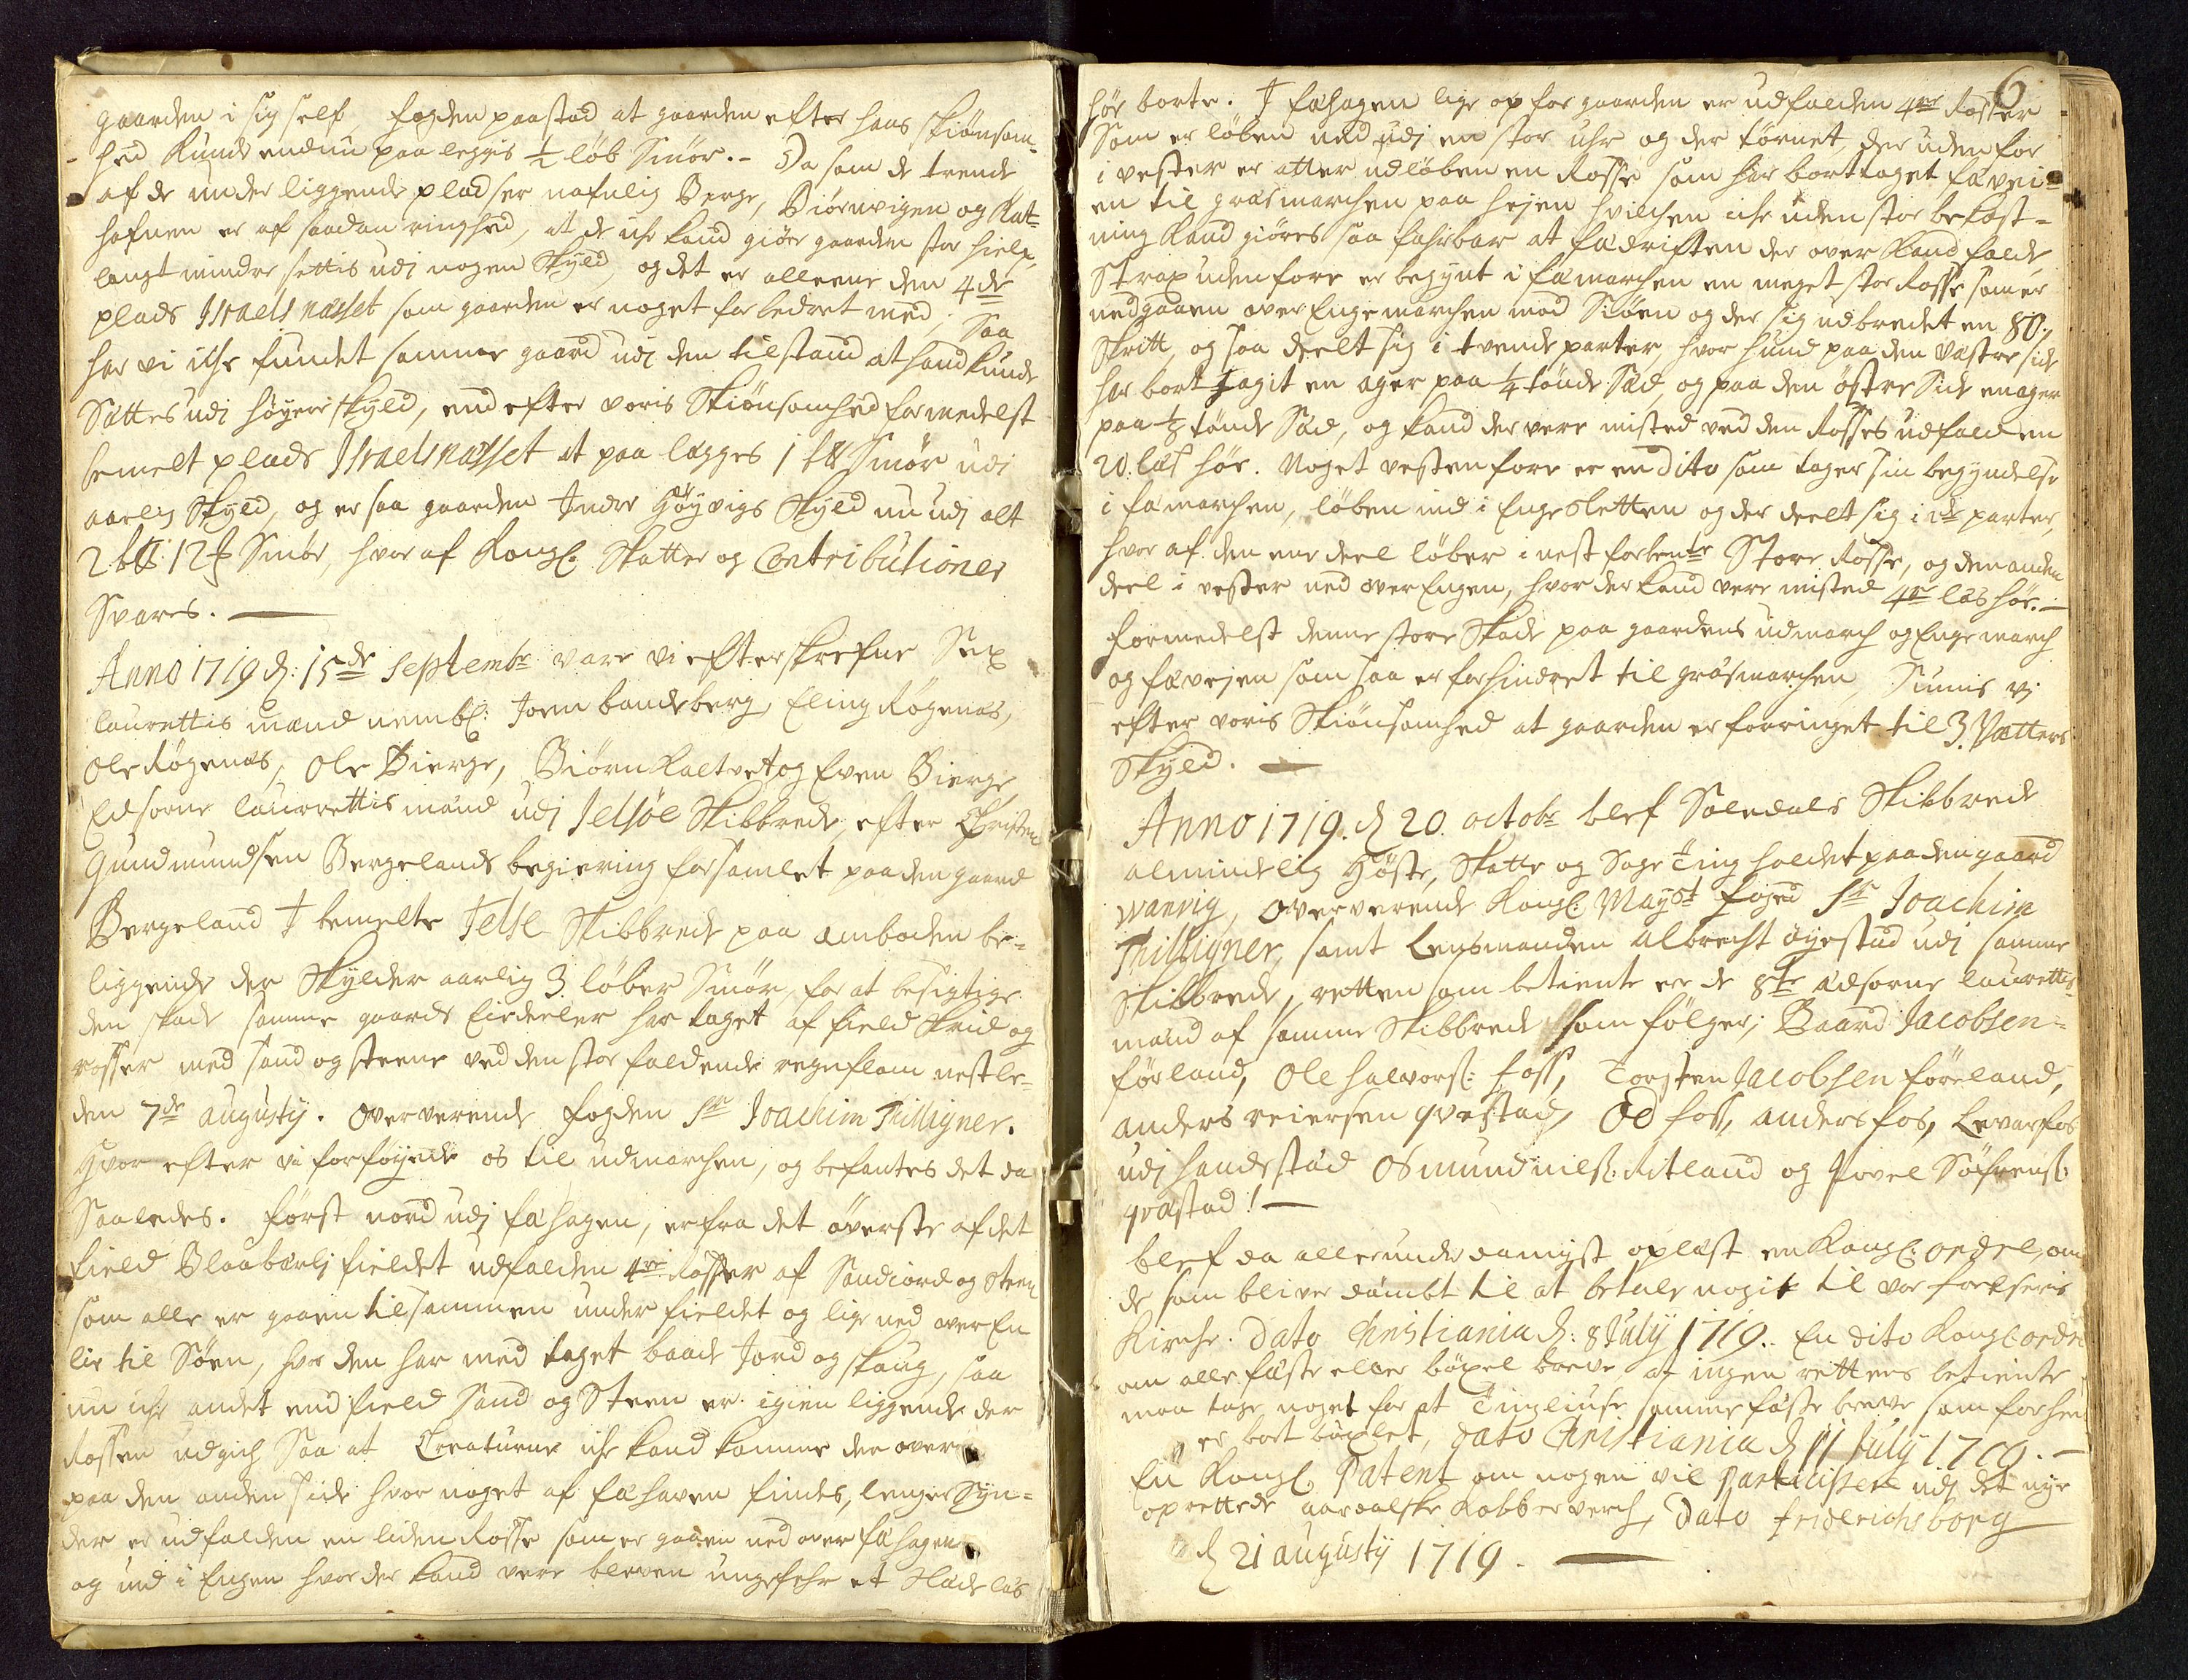 gaarden i sig self, fogden paastod at gaarden efter hans skiönsom-
hed kunde endnu paa leggis ½ löb Smör. - Da som de trende
af de under liggende pladser nafnlig Berge, Biörnvigen og Kat-
hafnen er af saadan ringhed, at de iche kand giöre gaarden stor hielp,
langt mindre settis udj nogen Skyld, og det er alleene den 4de
plads Israelsnæsset som gaarden er noget forbedret med, Saa
har vi iche fundet samme gaard udj den tilstand at hand kunde
Sættes udj höyere skyld, end efter voris Skiönsomhed formedelst
bemelt plads Israelsnæsset at paa lægges 1 Smör udj
aarlig Skyld, og er saa gaarden Indre Höyvigs Skyld nu udj alt
2 12 Smör, hvor af Kongl: Skatter og Contributioner
Svares. —
Anno 1719 d: 15de Septembr vare vi efterskrefne Sex
laurettis mænd nembl: Joen bandeberg, Eling Rögenæs,
Ole Rögenæs, Ole Bierge, Biörn Kaltvet og Even Bierge
Edsorne laurrettis mænd udj Jelsöe Skibbrede, efter Christen
Gundmundsen Bergelands begiering forsamlet paa den gaard
Bergeland I bemelte Jelse Skibbrede paa Ombo den be-
liggende der Skylder aarlig 3 löber Smör, for at besigtige
den skade samme gaards Eiedeeler har taget af field Skrid og
rosser med sand og steene ved den stor faldende regnflom nestle-
den 7de augusty. Oververende fogden Sr Joachim Thilligner.
Hvor efter vi forföyede os til udmarchen, og befantes det da
Saaledes. först nord udj fæhagen, er fra det överste af det
field Blaabærlj fieldet udfalden 4re Rosser af Sandiord og Steen
som alle er gaaen tilsammen under fieldet og lige ned over En
lie til Söen, hvor den har med taget baade Jord og skoug, saa
nu iche andet end field Sand og Steen er igien liggende der
Rossen udgich Saa at Creaturene iche kand komme der over
paa den anden side hvor noget af fæhaven findes, lenger Syn-
der er udfalden en liden Rosse som er gaaen ned over fæhagen
og ind i Engen hvor der kand vere bleven ungefehr et Slædelæs
6
höe borte. I fæhagen lige op for gaarden er udfalden 4re Rosser
Som er löben ned udj en stor uhr og der törnet, der uden for
i vester er atter udlöben en Rosse som har borttaget fævei-
en til græsmarchen paa hejen hvilchen iche uden stor bekost-
ning kand giöres saa farbar at fædriften der over kand falde
Strax uden fore er begynt i fæmarchen en meget stor Rosse som er
nedgaaen over Engemarchen mod Siöen og der sig udbredet en 80
Skritt, og saa deelt sig i tvende parter, hvor hund paa den væstre side
har bort tagit en ager paa ¼ tönde Sæd, og paa den östre Side en ager
paa ⅛ tönde Sæd, og kand der vere misted ved den Rosses udfald en
20 læs höe. Noget vesten fore er en dito som tager sin begyndelse
i fæmarchen, löben ind i Enge Sletten og der deelt sig i 2de parter,
hvor af den ene deel löber i nest forbente Store Rosse, og den anden
deel i vester ned over Engen, hvor der kand vere misted 4re læs höe. —
Formedelst denne store Skade paa gaardens udmarch og Enge march
og fæveien som saa er forhindret til græsmarchen, Siunis vj
efter voris Skiönsomhed at gaarden er forringet til 3. Vætters
Skyld. —
Anno 1719. d 20. octobr blef Soledals Skibbrede
almindelig Höste, Skatte og Sage Ting holdet paa den gaard
Wanvig, oververende Kongl: Mayst foged Sr Joachim
Thilligner, samt Lensmanden Albrecht öyestad udj samme
Skibbrede, retten som betiente ere de 8te Edsorne laurettis-
mænd af samme Skibbrede som fölger; Baard Jacobsen
förland, Ole Halvors: Foss, Torsten Jacobsen föreland,
anders reiersen qvestad, Od foss, anders fos, Levar fos
udj handestad Osmund niels: Ritland og Povel Söfrens:
qvæstad! —
blef da allerunderdanigst oplæst en Kongl: ordre, om
de som bliver dömbt til at betale nogit til vor frelseris
Kirche. Dato Christiania d: 8 July 1719. En dito Kongl: ordre
om alle fæste eller böxel breve, at ingen rettens betiente
maa tage noget for at Tingliuse samme fæste breve som forhen
er bort böxlet, Dato Christiania d 11 July 1719. —
En Kongl: Patent om nogen vil Participere udj det nye
oprettede aardalske Kobberverch, Dato Friderichsborg
d 21 augusty 1719. —